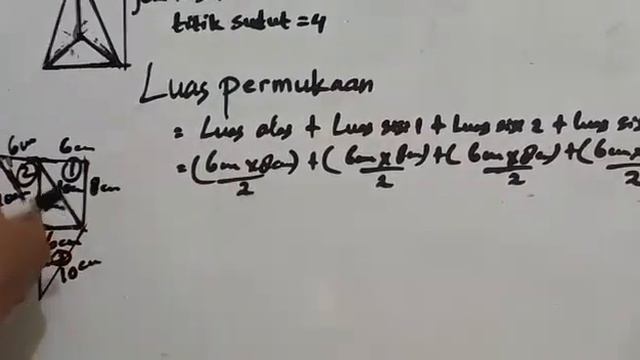 titik sudut = 4
Luas permukaan
= Luas alas + Luas sisi 1 + Luas sisi 2 + Luas sis
= (6cm x 8cm)/2 + (6cm x 8cm)/2 + (6cm x 8cm)/2 + (6cm x
2
6cm 6cm
2 1
8cm
10cm